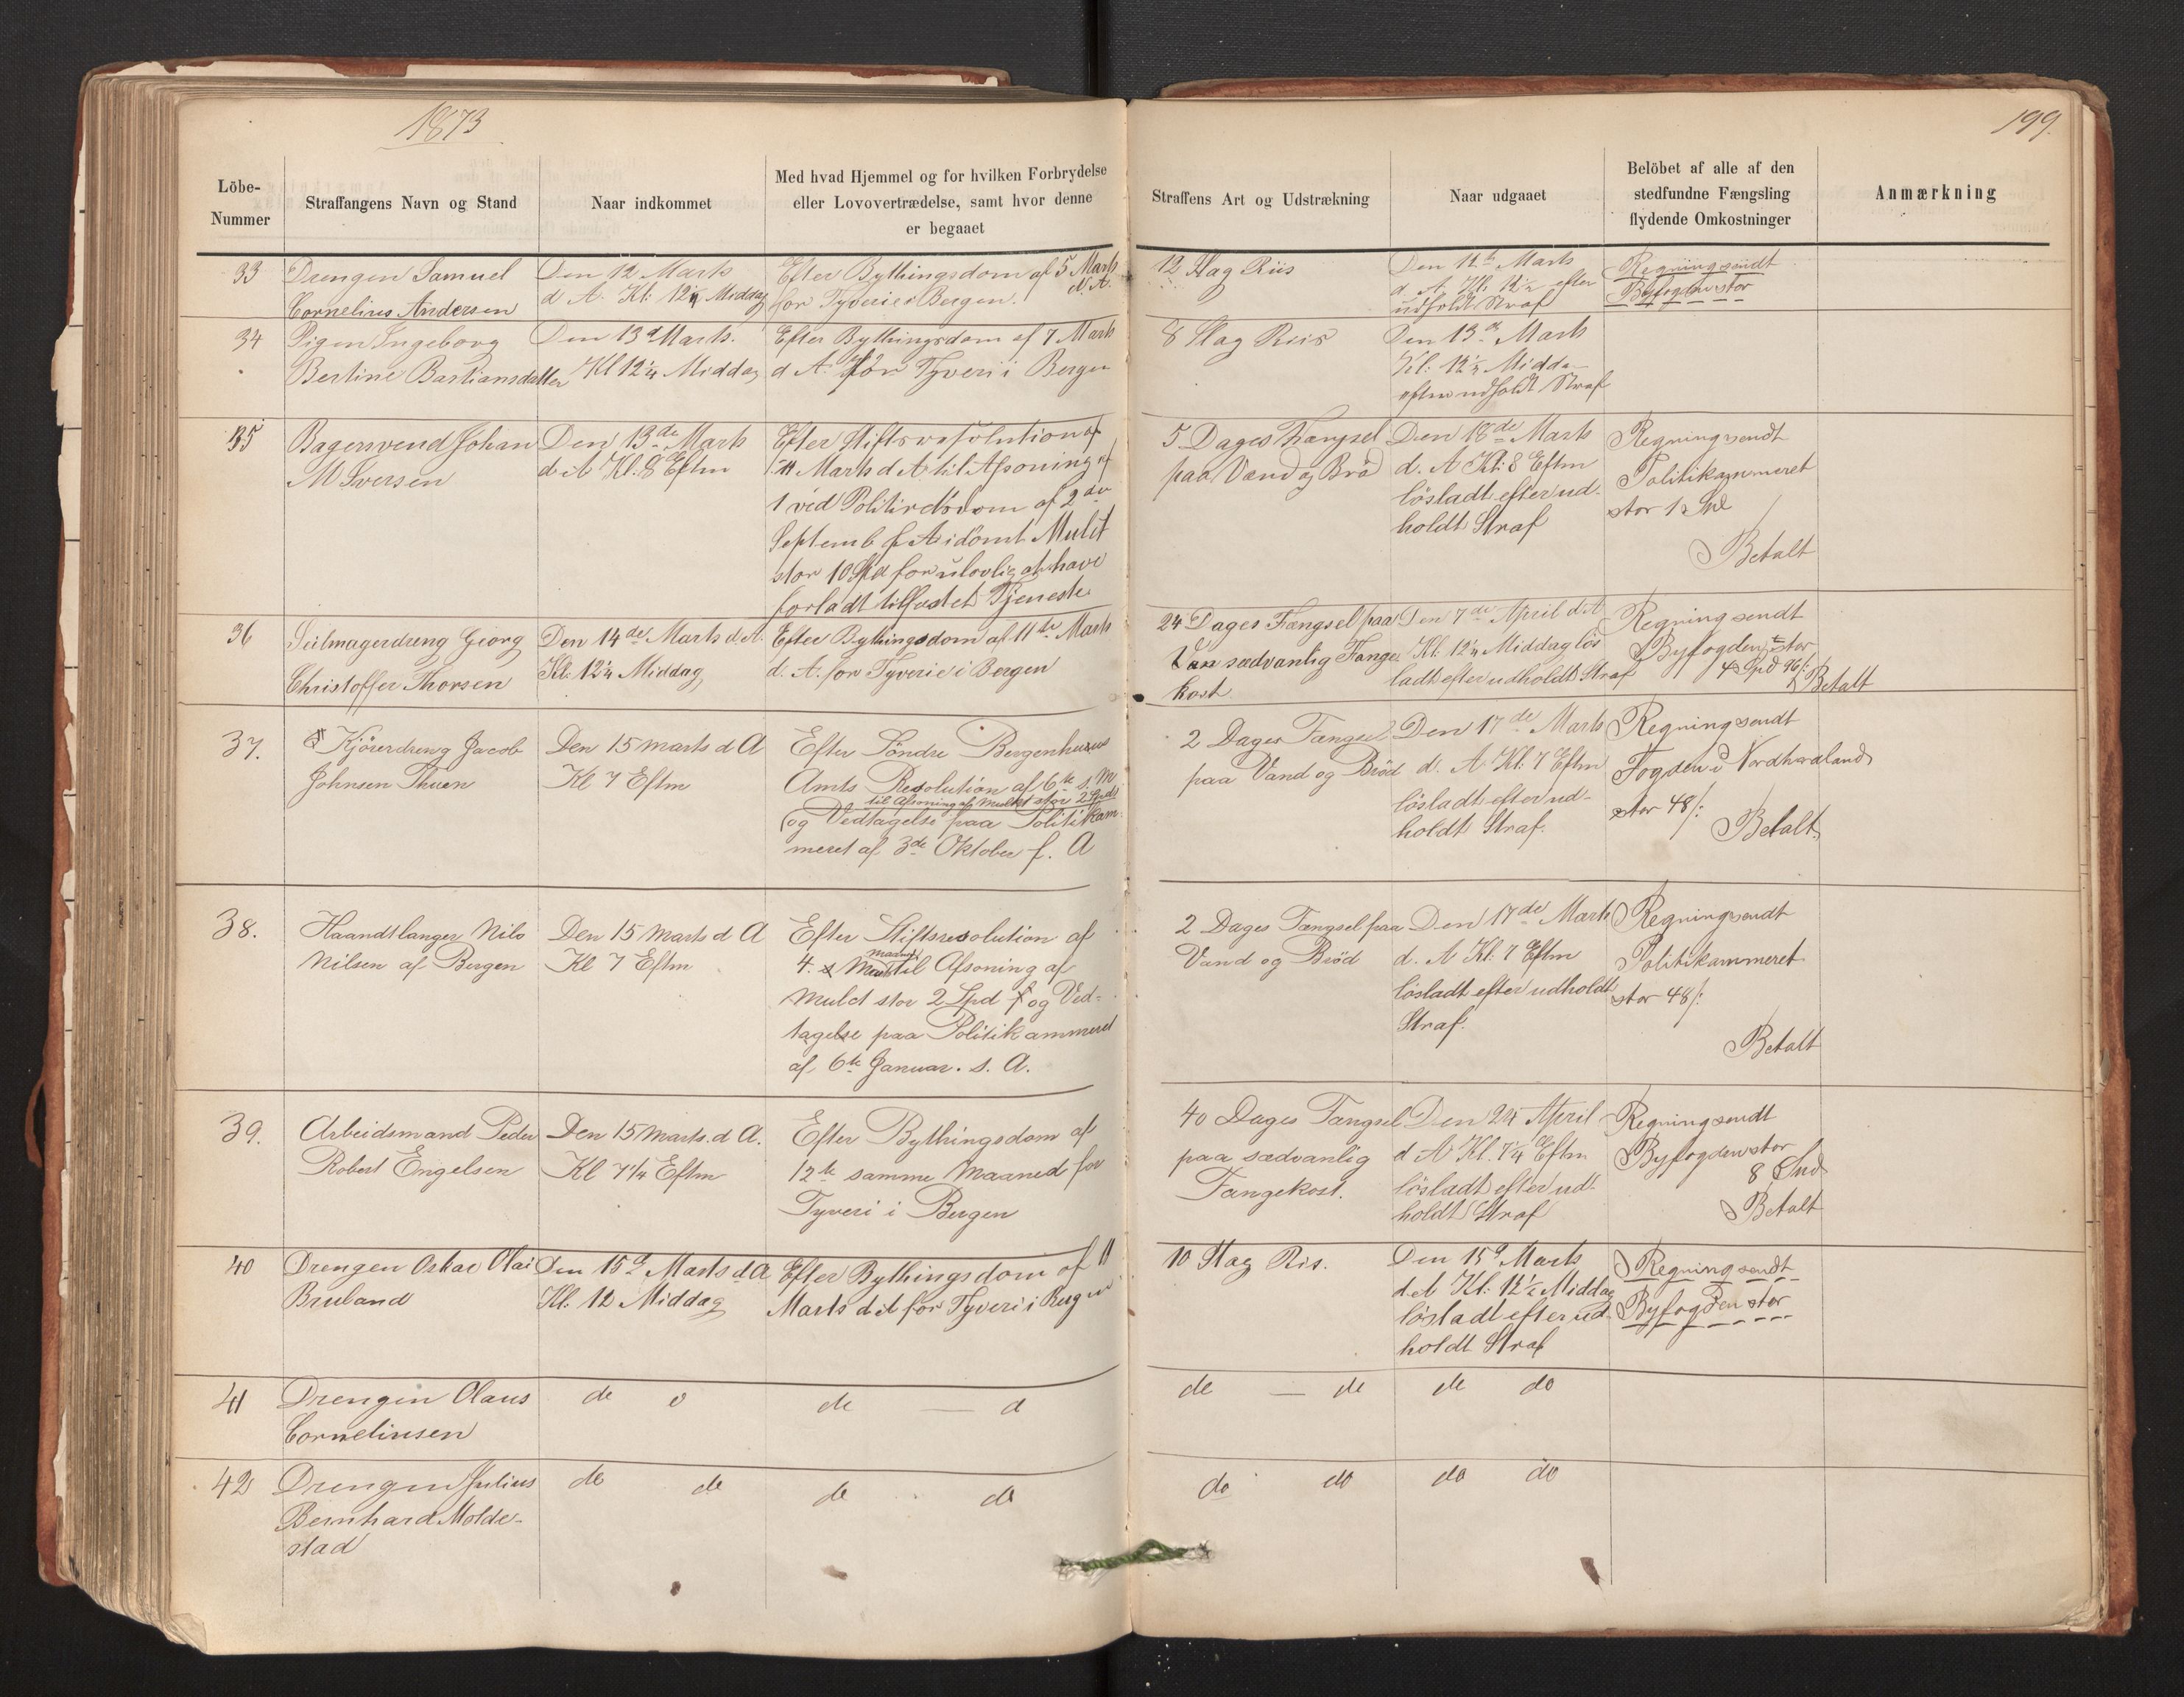 1873
199.
Löbe-
Nummer
Straffangens Navn og Stand
Naar indkommet
Med hvad Hjemmel og for hvilken Forbrydelse
eller Lovovertrædelse, samt hvor denne
er begaaet
Straffens Art og Udstrækning
Naar udgaaet
Belöbet af alle af den
stedfundne Fængsling
flydende Omkostninger
Anmærkning
33
Drengen Samuel
Cornelius Andersen
Den 12 Marts
d A. Kl: 12¼ Middag
Efter Bythingsdom af 5 Marts
d. A.
for Tyverie i Bergen.
12 Slag Riis
Den 12te Marts
d. A. Kl: 12½ efter
udholdt Straf
Regning sendt
Byfogden stor
34
Pigen Ingeborg
Bertine Bastiansdatter
Den 13de Marts.
Kl 12¼ Middag
Efter Bythingsdom af 7 Marts
d A. for Tyveri i Bergen
8 Slag Riis
Den 13de Marts
Kl: 12½ Midda
efter udholdt Straf
35
Bagersvend Johan
M Iversen
Den 13de Marts
d A Kl: 8 Eftm
Efter Stiftsresolution af
11 Marts d A til Afsoning af
1 ved Politiretsdom af 2den
Septemb f A idömt Mulct
stor 10 Spd for ulovlig at have
forladt tilfæstet Tjeneste
5 Dages Fængsel
paa Vand og Bröd
Den 18de Marts
d. A Kl: 8 Eftm
lösladt efter ud-
holdt Straf
Regning sendt
Politikammeret
stor 1 Spd
Betalt
36
Seilmagerdreng Georg
Christoffer Thorsen
Den 14de Marts d. A.
Kl: 12¼ Middag
Efter Bythingsdom af 11te Marts
d. A. for Tyverie i Bergen
24 Dages Fængsel paa
sædvanlig Fange
kost
Den 7de April d. A
Kl: 12¼ Middag lös
ladt efter udholdt Straf
Regning sendt
Byfogden stor
4 Spd 96/:
Betalt
37.
Kjörerdreng Jacob
Johnsen Thuen
Den 15 Marts d A
Kl 7 Eftm
Efter Söndre Bergenhuus
Amts Resolution af 6te s. M
til Afsoning af Mulct stor 2 Spd
(og Vedtagelse paa Politikam-
meret af 3de Oktober f. A
2 Dages Fængsel
paa Vand og Bröd
Den 17de Marts
d. A Kl: 7 Eftm
lösladt efter ud-
holdt Straf.
Regning sendt
Fogden i Nordhordland
stor 48/:
Betalt
38.
Haandtlanger Nils
Nilsen af Bergen
Den 15 Marts d A
Kl 7 Eftm
Efter Stiftsresolution af
4. Marts til Afsoning af
Mulct stor 2 Spd og Ved-
tagelse paa Politikammeret
af 6te Januar. s. A.
2 Dages Fængsel paa
Vand og Bröd
Den 17de Marts
d. A Kl: 7 Eftm
lösladt efter udholdt
Straf.
Regning sendt
Politikammeret
stor 48/:
Betalt
39.
Arbeidsmand Peder
Robert Engelsen
Den 15 Marts. d A.
Kl 7¼ Eftm
Efter Bythingsdom af
12te samme Maaned for
Tyveri i Bergen
40 Dages Fængsel
paa sædvanlig
Fangekost.
Den 24 April
d A Kl: 7¼ Eftm
lösladt efter ud-
holdt Straf
Regning sendt
Byfogden stor
8 Spd
Betalt
40
Drengen Oskar Olai
Bruland
Den 15de Marts d A
Kl: 12 Middag
Efter Bythingsdom af 11
Marts d A for Tyveri i Bergen
10 Slag Ris.
Den 15de Marts
d A Kl: 12½ Middag
lösladt efter ud-
holdt Straf
Regning sendt
Byfogden stor
41
Drengen Olaus
Corneliusen
do o
do — d
do — do
do do
42
Drengen Julius
Bernhard Molde-
stad
do do
do do
do do
do do